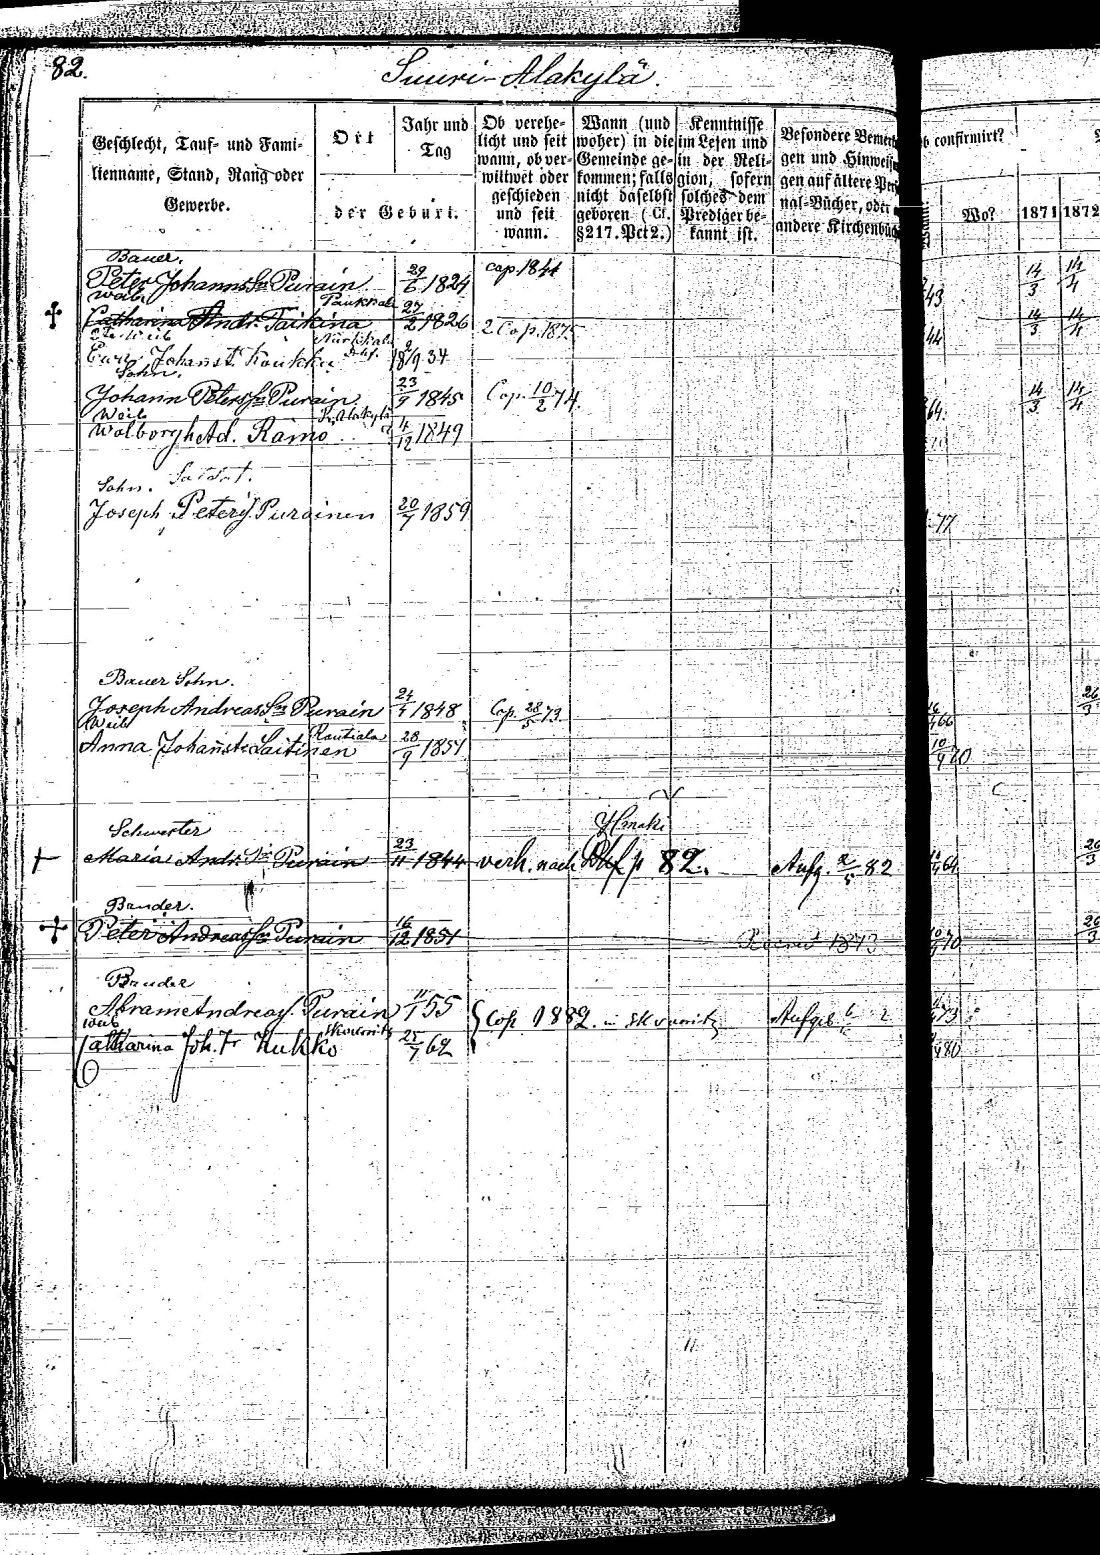 82.
Suuri-Alakylä.
Geschlecht, Tauf- und Fami-
lienname, Stand, Rang oder
Gewerbe.
Ort
der Geburt.
Jahr und
Tag
Ob verehe-
licht und seit
wann, ob ver-
wittwet oder
geschieden
und seit
wann.
Wann (und
woher) in die
Gemeinde ge-
kommen; falls
nicht daselbst
geboren (Cf.
§217. Pct 2.)
Kenntnisse
im Lesen und
in der Reli-
gion, sofern
solches dem
Prediger be-
kannt ist.
Besondere Bemer
gen und Hinwei
gen auf ältere Per
nal-Bücher, oder
andere Kirchenbüc
ob confirmirt?
Wo?
1871
1872
Bauer.
Peter Johanns Sn Purain 29/6 1824 cop. 1844 14/3 14/4
Weib 43
Catharina Andr. Taikina 27/2 1826 2 Cop. 1875 14/3 14/4
2te Weib 44
Johanst. Koukku 34
Sohn.
Johann Peters Sn Purain 23/9 1845 Cop. 10/2 74. 64 14/3 14/4
Weib
Walborg Ad. Rämö 4/12 1849
Sohn. Soldat.
Joseph Peters Purainen 20/7 1859 77
Bauer Sohn.
Joseph Andreas Sn Purain 24/4 1848 Cop. 28/5 73. 66 26/3
Weib Rautiala
Anna Johanst. Laitinen 28/9 1851 10/4 70
Schwester
Maria Andr. Purain 23/11 1844 verh. nach 82. Aufg. 2/5 82 64 26/3
Bruder.
Peter Andreas Sn Purain 16/12 1851 1873 70 26/3
Bruder
Abram Andreas Purain 11/1 55 Cop 1882. in Skworitz Aufgeb. 73
Weib Skworitz
Catharina Joh. Tr Kukko 25/7 62 80